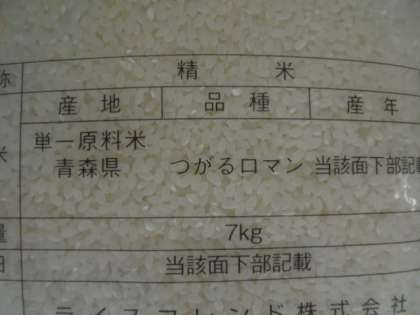 称 精 米
産 地 品 種 産 年
単一原料米
米 青森県 つがるロマン 当該面下部記載
量 7kg
日 当該面下部記載
ライスフレンド株式会社